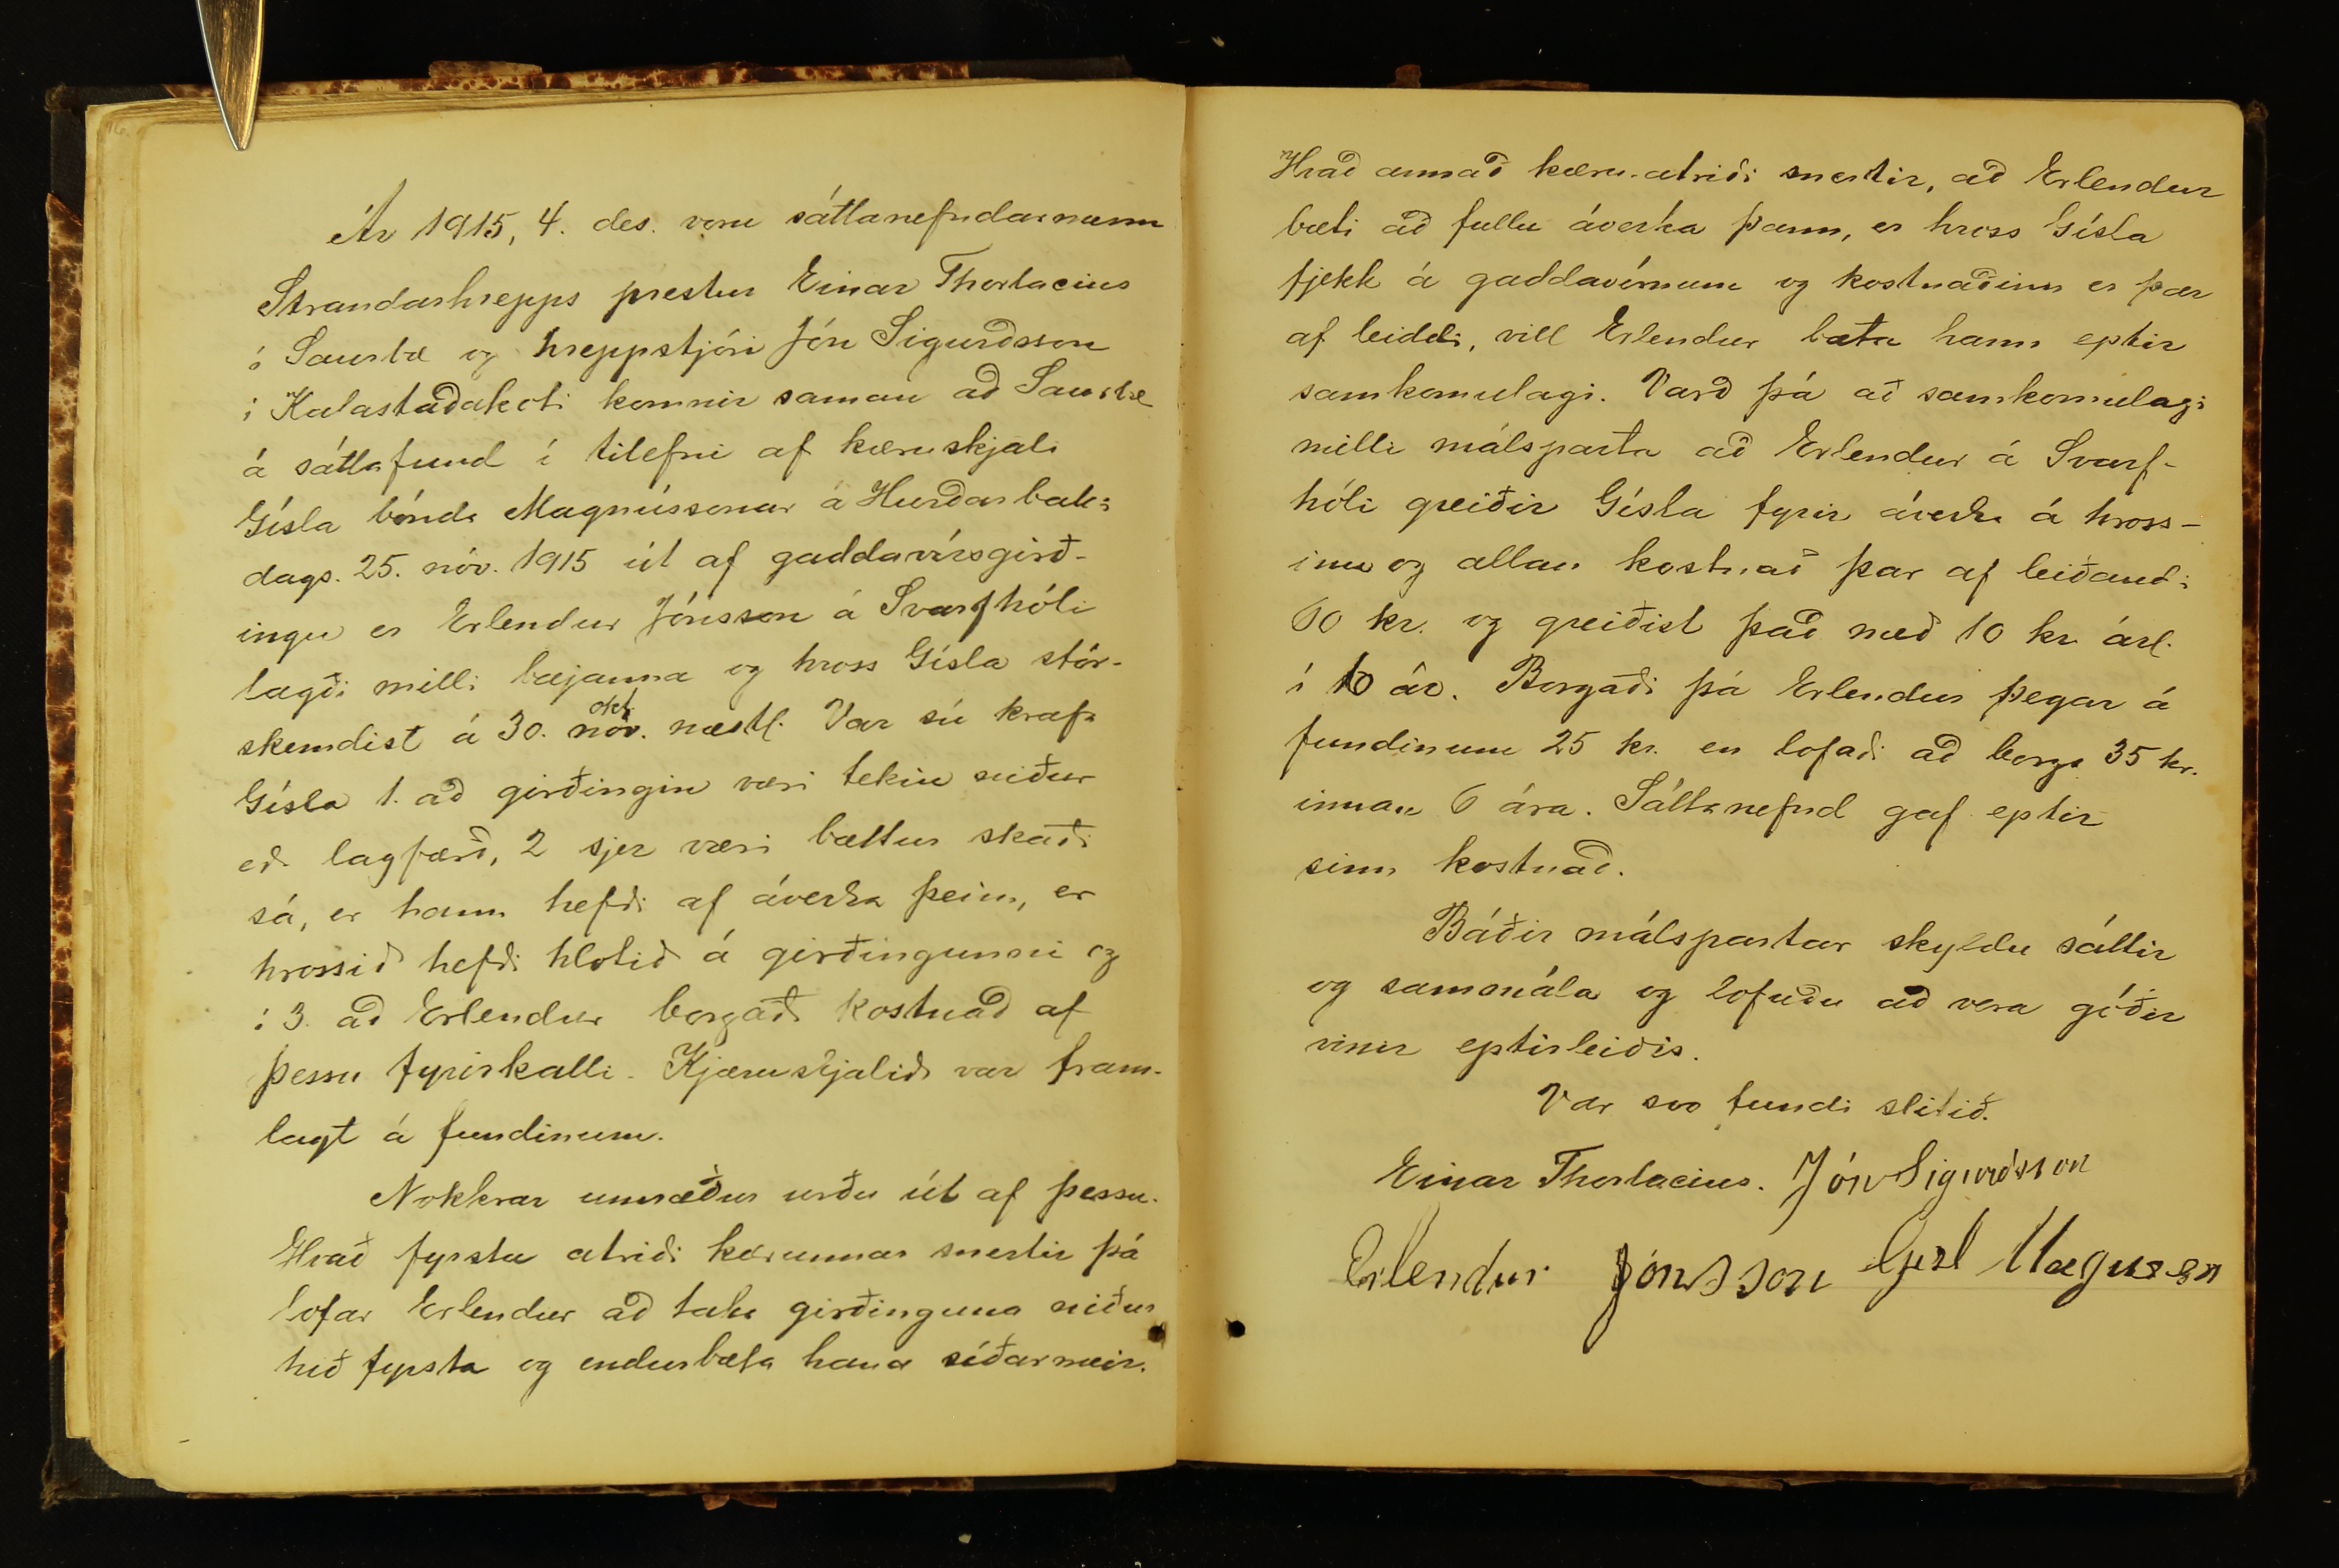 Ár 1915, 4. des. voru sáttanefndarmenn
Strandarhrepps prestur Einar Thorlacius
í Saurbæ og hreppstjóri Jón Sigurðsson
í Kalastaðakoti komnir saman að Saurbæ
á sáttafund í tilefni af kæruskjali
Gísla bónda Magnússonar á Hurðarbaki
dags. 25. nóv. 1915 út af gaddavírsgirð-
ingu er Erlendur Jónsson á Svarfhóli
lagði milli bæjanna og hross Gísla stór-
skemdist á 30. nóv. okt. næstl. Var sú krafa
Gísla 1. að girðingin væri tekin niður
eða lagfærð, 2 sjer væri bættur skaði
sá, er hann hefði af áverka þeim, er
hrossið hefði hlotið á girðingunni og
í 3. að Erlendur borgaði kostnað af
þessu fyrirkalli. Kjæruskjalið var fram-
lagt á fundinum.
Nokkrar umræður urðu út af þessu.
Hvað fyrsta atriði kærunnar snertir þá
lofar Erlendur að taka girðinguna niður
hið fyrsta og endurbæta hana síðarmeir.
Hvað annað kæru-atriði snertir, að Erlendur
bæti að fullu áverka þann, er hross Gísla
fjekk á gaddavírnum og kostnaðinn er þar
af leiddi, vill Erlendur bæta hann eptir
samkomulagi. Varð þá að samkomulagi
milli málsparta að Erlendur á Svarf-
hóli greiðir Gísla fyrir áverka á hross-
inu og allan kostnað þar af leiðandi
60 kr. og greiðist það með 10 kr árl.
í 6 ár. Borgaði þá Erlendur þegar á
fundinum 25 kr. en lofaði að borga 35 kr.
innan 6 ára. Sáttanefnd gaf eptir
sinn kostnað.
Báðir málspartar skyldu sáttir
og sammála og lofuðu að vera góðir
vinir eptirleiðis.
Var svo fundi slitið.
Einar Thorlacius. Jón Sigurðsson
Erlendur Jónsson Gisl Magusson